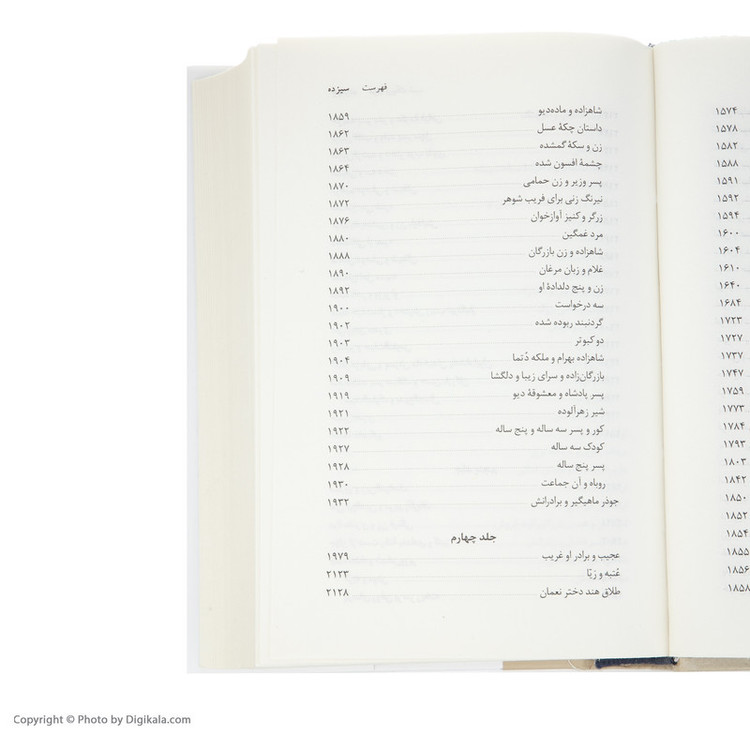 ۱۵۷۴
۱۵۷۸
۱۵۸۲
۱۵۸۸
۱۵۹۱
۱۵۹۲
۱۵۹۴
۱۶۰۰
۱۶۰۴
۱۶۱۰
۱۶۴۰
۱۶۸۴
۱۷۲۳
۱۷۲۷
۱۷۳۷
۱۷۴۷
۱۷۵۹
۱۷۷۳
۱۷۸۴
۱۷۹۳
۱۸۰۳
۱۸۴۲
۱۸۵۰
۱۸۵۲
۱۸۵۴
۱۸۵۵
۱۸۵۶
۱۸۵۸
فهرست سیزده
شاهزاده و ماده‌دیو ۱۸۵۹
داستان چکهٔ عسل ۱۸۶۲
زن و سکهٔ گمشده ۱۸۶۳
چشمهٔ افسون شده ۱۸۶۴
پسر وزیر و زن حمامی ۱۸۷۰
نیرنگ زنی برای فریب شوهر ۱۸۷۲
زرگر و کنیز آوازخوان ۱۸۷۶
مرد غمگین ۱۸۸۰
شاهزاده و زن بازرگان ۱۸۸۸
غلام و زبان مرغان ۱۸۹۰
زن و پنج دلدادهٔ او ۱۸۹۲
سه درخواست ۱۹۰۰
گردنبند ربوده شده ۱۹۰۲
دو کبوتر ۱۹۰۳
شاهزاده بهرام و ملکه دُتما ۱۹۰۴
بازرگان‌زاده و سرای زیبا و دلگشا ۱۹۰۹
پسر پادشاه و معشوقهٔ دیو ۱۹۱۹
شیر زهرآلوده ۱۹۲۱
کور و پسر سه ساله و پنج ساله ۱۹۲۲
کودک سه ساله ۱۹۲۷
پسر پنج ساله ۱۹۲۸
روباه و آن جماعت ۱۹۳۰
جوذر ماهیگیر و برادرانش ۱۹۳۲
جلد چهارم
عجیب و برادر او غریب ۱۹۷۹
عُتبه و ریّا ۲۱۲۳
طلاق هند دختر نعمان ۲۱۲۸
Copyright © Photo by Digikala.com